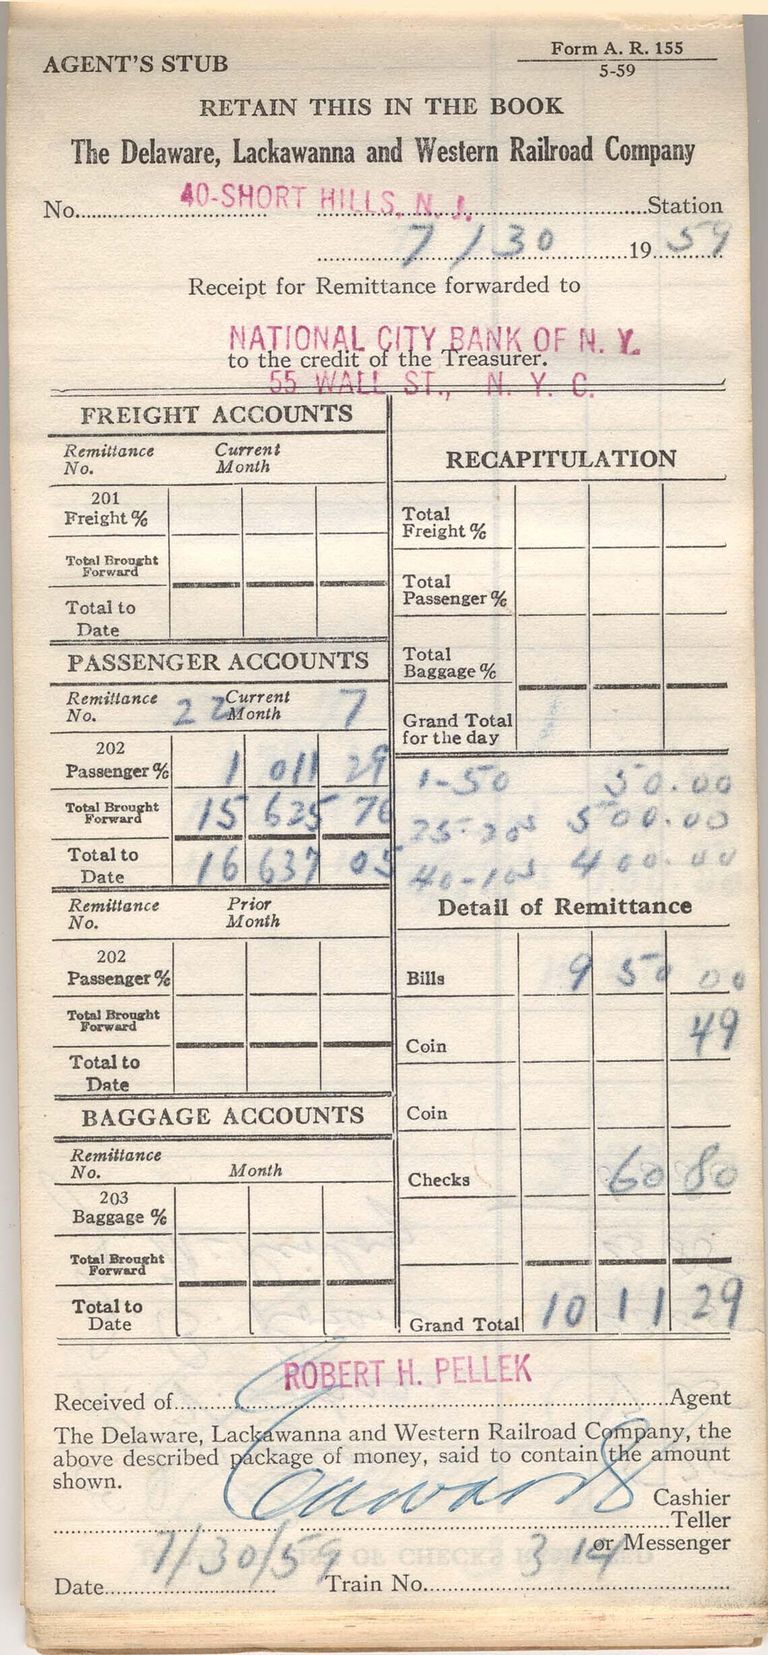 AGENT'S STUB
Form A. R. 155
5-59
RETAIN THIS IN THE BOOK
The Delaware, Lackawanna and Western Railroad Company
No. 40-SHORT HILLS, N. J. Station
7/30 1959
Receipt for Remittance forwarded to
NATIONAL CITY BANK OF N. Y.
to the credit of the Treasurer.
55 WALL ST., N. Y. C.
FREIGHT ACCOUNTS
Remittance No. Current Month
201 Freight %
Total Brought Forward
Total to Date
PASSENGER ACCOUNTS
Remittance No. 22 Current Month 7
202 Passenger % 1 011 29
Total Brought Forward 15 625 76
Total to Date 16 637 05
Remittance No. Prior Month
202 Passenger %
Total Brought Forward
Total to Date
BAGGAGE ACCOUNTS
Remittance No. Month
203 Baggage %
Total Brought Forward
Total to Date
RECAPITULATION
Total Freight %
Total Passenger %
Total Baggage %
Grand Total for the day
1-50 50.00
25-20s 500.00
40-10s 400.00
Detail of Remittance
Bills 9 50 00
Coin 49
Coin
Checks 60 80
Grand Total 10 11 29
ROBERT H. PELLEK
Received of Agent
The Delaware, Lackawanna and Western Railroad Company, the
above described package of money, said to contain the amount
shown.
Cashier
Teller
or Messenger
Date 7/30/59 Train No. 314